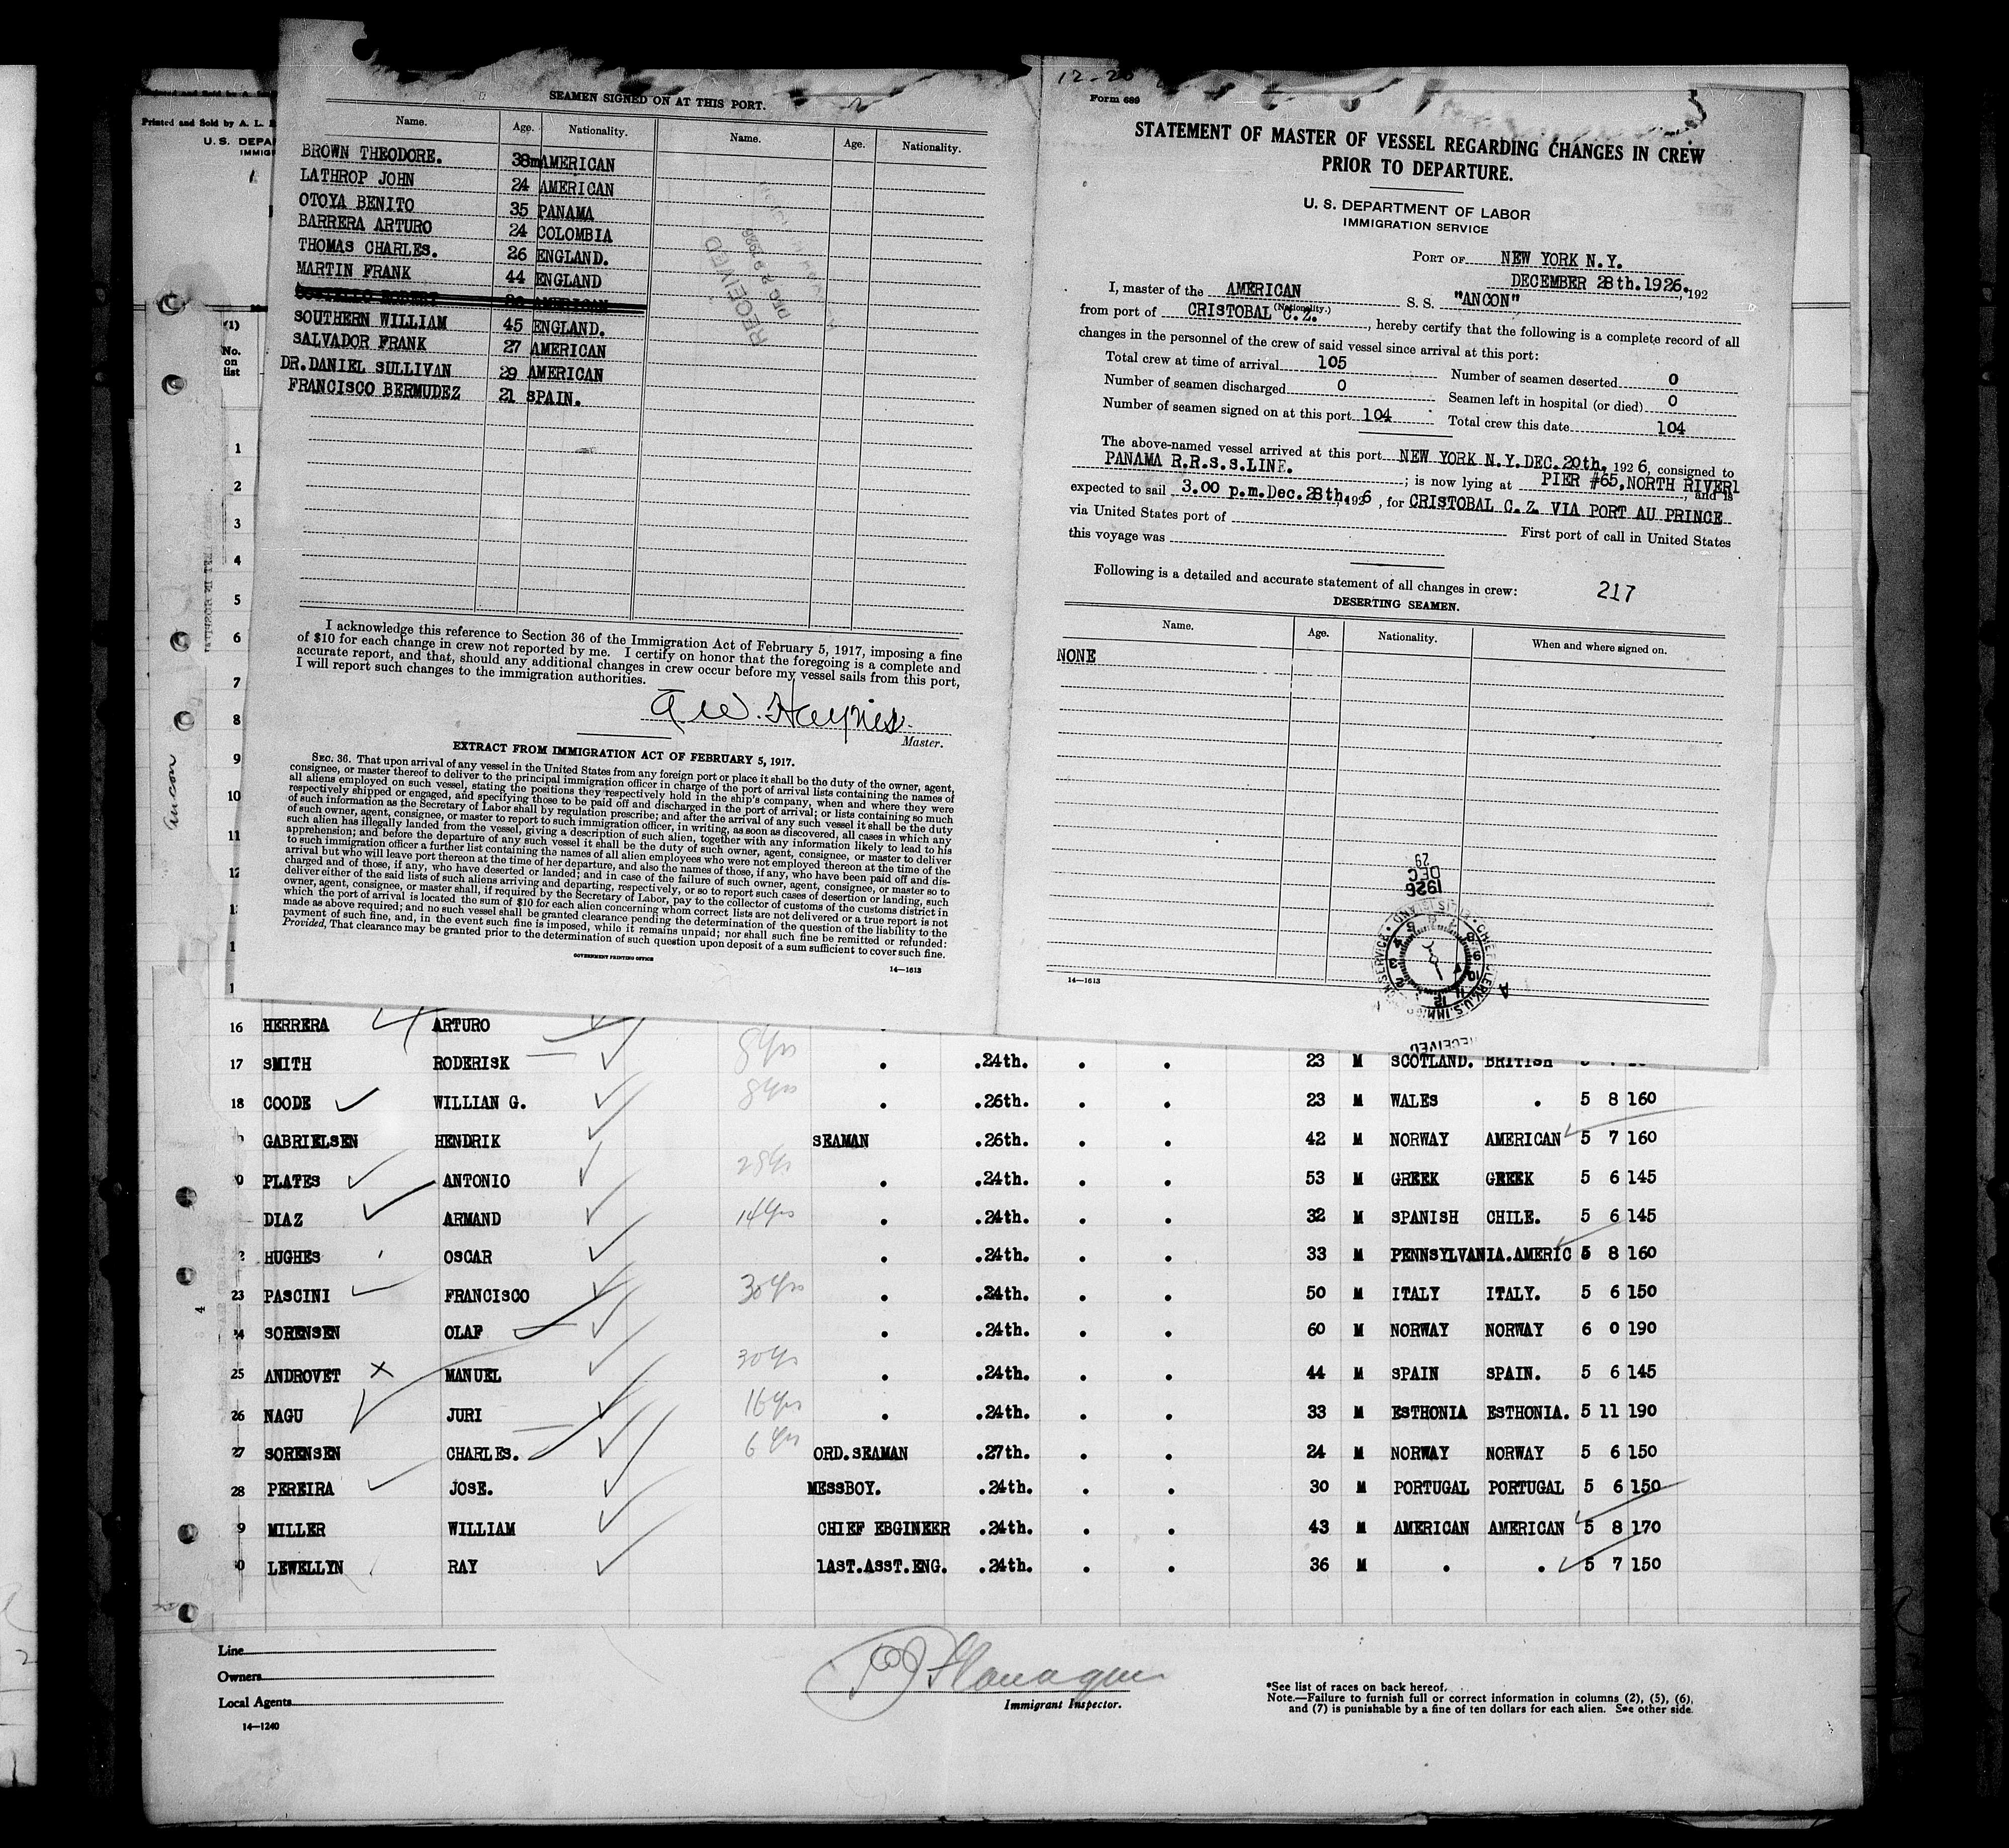 SEAMEN SIGNED ON AT THIS PORT.
Name. Age. Nationality. Name. Age. Nationality.
BROWN THEODORE. 38m AMERICAN
LATHROP JOHN 24 AMERICAN
OTOYA BENITO 35 PANAMA
BARRERA ARTURO 24 COLOMBIA
THOMAS CHARLES. 26 ENGLAND.
MARTIN FRANK 44 ENGLAND
COSTELLO ROBERT AMERICAN
SOUTHERN WILLIAM 45 ENGLAND.
SALVADOR FRANK 27 AMERICAN
DR.DANIEL SULLIVAN 29 AMERICAN
FRANCISCO BERMUDEZ 21 SPAIN.
RECEIVED
DEC 29 1926
I acknowledge this reference to Section 36 of the Immigration Act of February 5, 1917, imposing a fine
of $10 for each change in crew not reported by me. I certify on honor that the foregoing is a complete and
accurate report, and that, should any additional changes in crew occur before my vessel sails from this port,
I will report such changes to the immigration authorities.
A.W. Haynes
Master.
EXTRACT FROM IMMIGRATION ACT OF FEBRUARY 5, 1917.
SEC. 36. That upon arrival of any vessel in the United States from any foreign port or place it shall be the duty of the owner, agent,
consignee, or master thereof to deliver to the principal immigration officer in charge of the port of arrival lists containing the names of
all aliens employed on such vessel, stating the positions they respectively hold in the ship's company, when and where they were
respectively shipped or engaged, and specifying those to be paid off and discharged in the port of arrival; or lists containing so much
of such information as the Secretary of Labor shall by regulation prescribe; and after the arrival of any such vessel it shall be the duty
of such owner, agent, consignee, or master to report to such immigration officer, in writing, as soon as discovered, all cases in which any
such alien has illegally landed from the vessel, giving a description of such alien, together with any information likely to lead to his
apprehension; and before the departure of any such vessel it shall be the duty of such owner, agent, consignee, or master to deliver
to such immigration officer a further list containing the names of all alien employees who were not employed thereon at the time of the
arrival but who will leave port thereon at the time of her departure, and also the names of those, if any, who have been paid off and dis-
charged and of those, if any, who have deserted or landed; and in case of the failure of such owner, agent, consignee, or master so to
deliver either of the said lists of such aliens arriving and departing, respectively, or so to report such cases of desertion or landing, such
owner, agent, consignee, or master shall, if required by the Secretary of Labor, pay to the collector of customs of the customs district in
which the port of arrival is located the sum of $10 for each alien concerning whom correct lists are not delivered or a true report is not
made as above required; and no such vessel shall be granted clearance pending the determination of the question of the liability to the
payment of such fine, and, in the event such fine is imposed, while it remains unpaid; nor shall such fine be remitted or refunded:
Provided, That clearance may be granted prior to the determination of such question upon deposit of a sum sufficient to cover such fine.
GOVERNMENT PRINTING OFFICE
14—1613
12-20
Form 689
STATEMENT OF MASTER OF VESSEL REGARDING CHANGES IN CREW
PRIOR TO DEPARTURE.
U. S. DEPARTMENT OF LABOR
IMMIGRATION SERVICE
PORT OF NEW YORK N.Y.
DECEMBER 28th.1926., 192
I, master of the AMERICAN S. S. "ANCON"
(Nationality.)
from port of CRISTOBAL C.Z., hereby certify that the following is a complete record of all
changes in the personnel of the crew of said vessel since arrival at this port:
Total crew at time of arrival 105 Number of seamen deserted 0
Number of seamen discharged 0 Seamen left in hospital (or died) 0
Number of seamen signed on at this port 104 Total crew this date 104
The above-named vessel arrived at this port NEW YORK N.Y.DEC.20th, 1926, consigned to
PANAMA R.R.S.S.LINE.; is now lying at PIER #65,NORTH RIVER1, and is
expected to sail 3.00 p.m.Dec.28th, 1926, for CRISTOBAL C.Z. VIA PORT AU PRINCE
via United States port of First port of call in United States
this voyage was
Following is a detailed and accurate statement of all changes in crew: 217
DESERTING SEAMEN.
Name. Age. Nationality. When and where signed on.
NONE
29
DEC
1926
RECEIVED
14—1613
Printed and Sold by A. L.
U. S. DEPA
IMMIGR
(1)
No.
on
list
1
2
3
4
5
6
7
8
9
10
11
12
Ancon
16 HERRERA ARTURO
17 SMITH RODERISK 8 yrs .24th. 23 M SCOTLAND. BRITISH
18 COODE WILLIAN G. 8 yrs .26th. 23 M WALES . 5 8 160
GABRIELSEN HENDRIK SEAMAN .26th. 42 M NORWAY AMERICAN 5 7 160
0 PLATES ANTONIO 25 yrs .24th. 53 M GREEK GREEK 5 6 145
DIAZ ARMAND 14 yrs .24th. 32 M SPANISH CHILE. 5 6 145
2 HUGHES OSCAR .24th. 33 M PENNSYLVANIA.AMERIC 5 8 160
23 PASCINI FRANCISCO 30 yrs .24th. 50 M ITALY ITALY. 5 6 150
4 SORENSEN OLAF .24th. 60 M NORWAY NORWAY 6 0 190
25 ANDROVET MANUEL 30 yrs .24th. 44 M SPAIN SPAIN. 5 6 145
26 NAGU JURI 16 yrs .24th. 33 M ESTHONIA ESTHONIA. 5 11 190
27 SORENSEN CHARLES. 6 yrs ORD.SEAMAN .27th. 24 M NORWAY NORWAY 5 6 150
28 PEREIRA JOSE. MESSBOY. .24th. 30 M PORTUGAL PORTUGAL 5 6 150
9 MILLER WILLIAM CHIEF EBGINEER .24th. 43 M AMERICAN AMERICAN 5 8 170
0 LEWELLYN RAY 1AST.ASST.ENG. .24th. 36 M . . 5 7 150
Line
Owners
Local Agents
14—1240
Flanagan
Immigrant Inspector.
*See list of races on back hereof.
Note.—Failure to furnish full or correct information in columns (2), (5), (6),
and (7) is punishable by a fine of ten dollars for each alien. See other side.